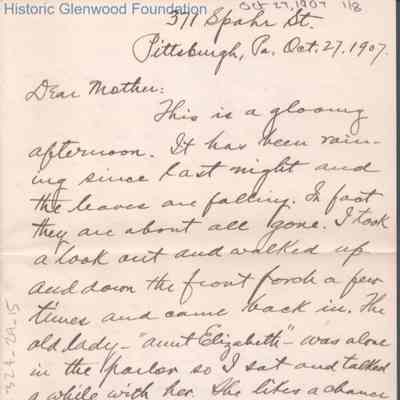 Historic Glenwood Foundation
Oct 27, 1907 1/8
311 Spahr St.
Pittsburgh, Pa. Oct. 27, 1907.
Dear Mother:
This is a gloomy
afternoon. It has been rain-
ing since last night and
the leaves are falling. In fact
they are about all gone. I took
a look out and walked up
and down the front porch a few
times and came back in. The
old lady - "aunt Elizabeth" - was alone
in the parlor so I sat and talked
a while with her. She likes a chance
324-29-15